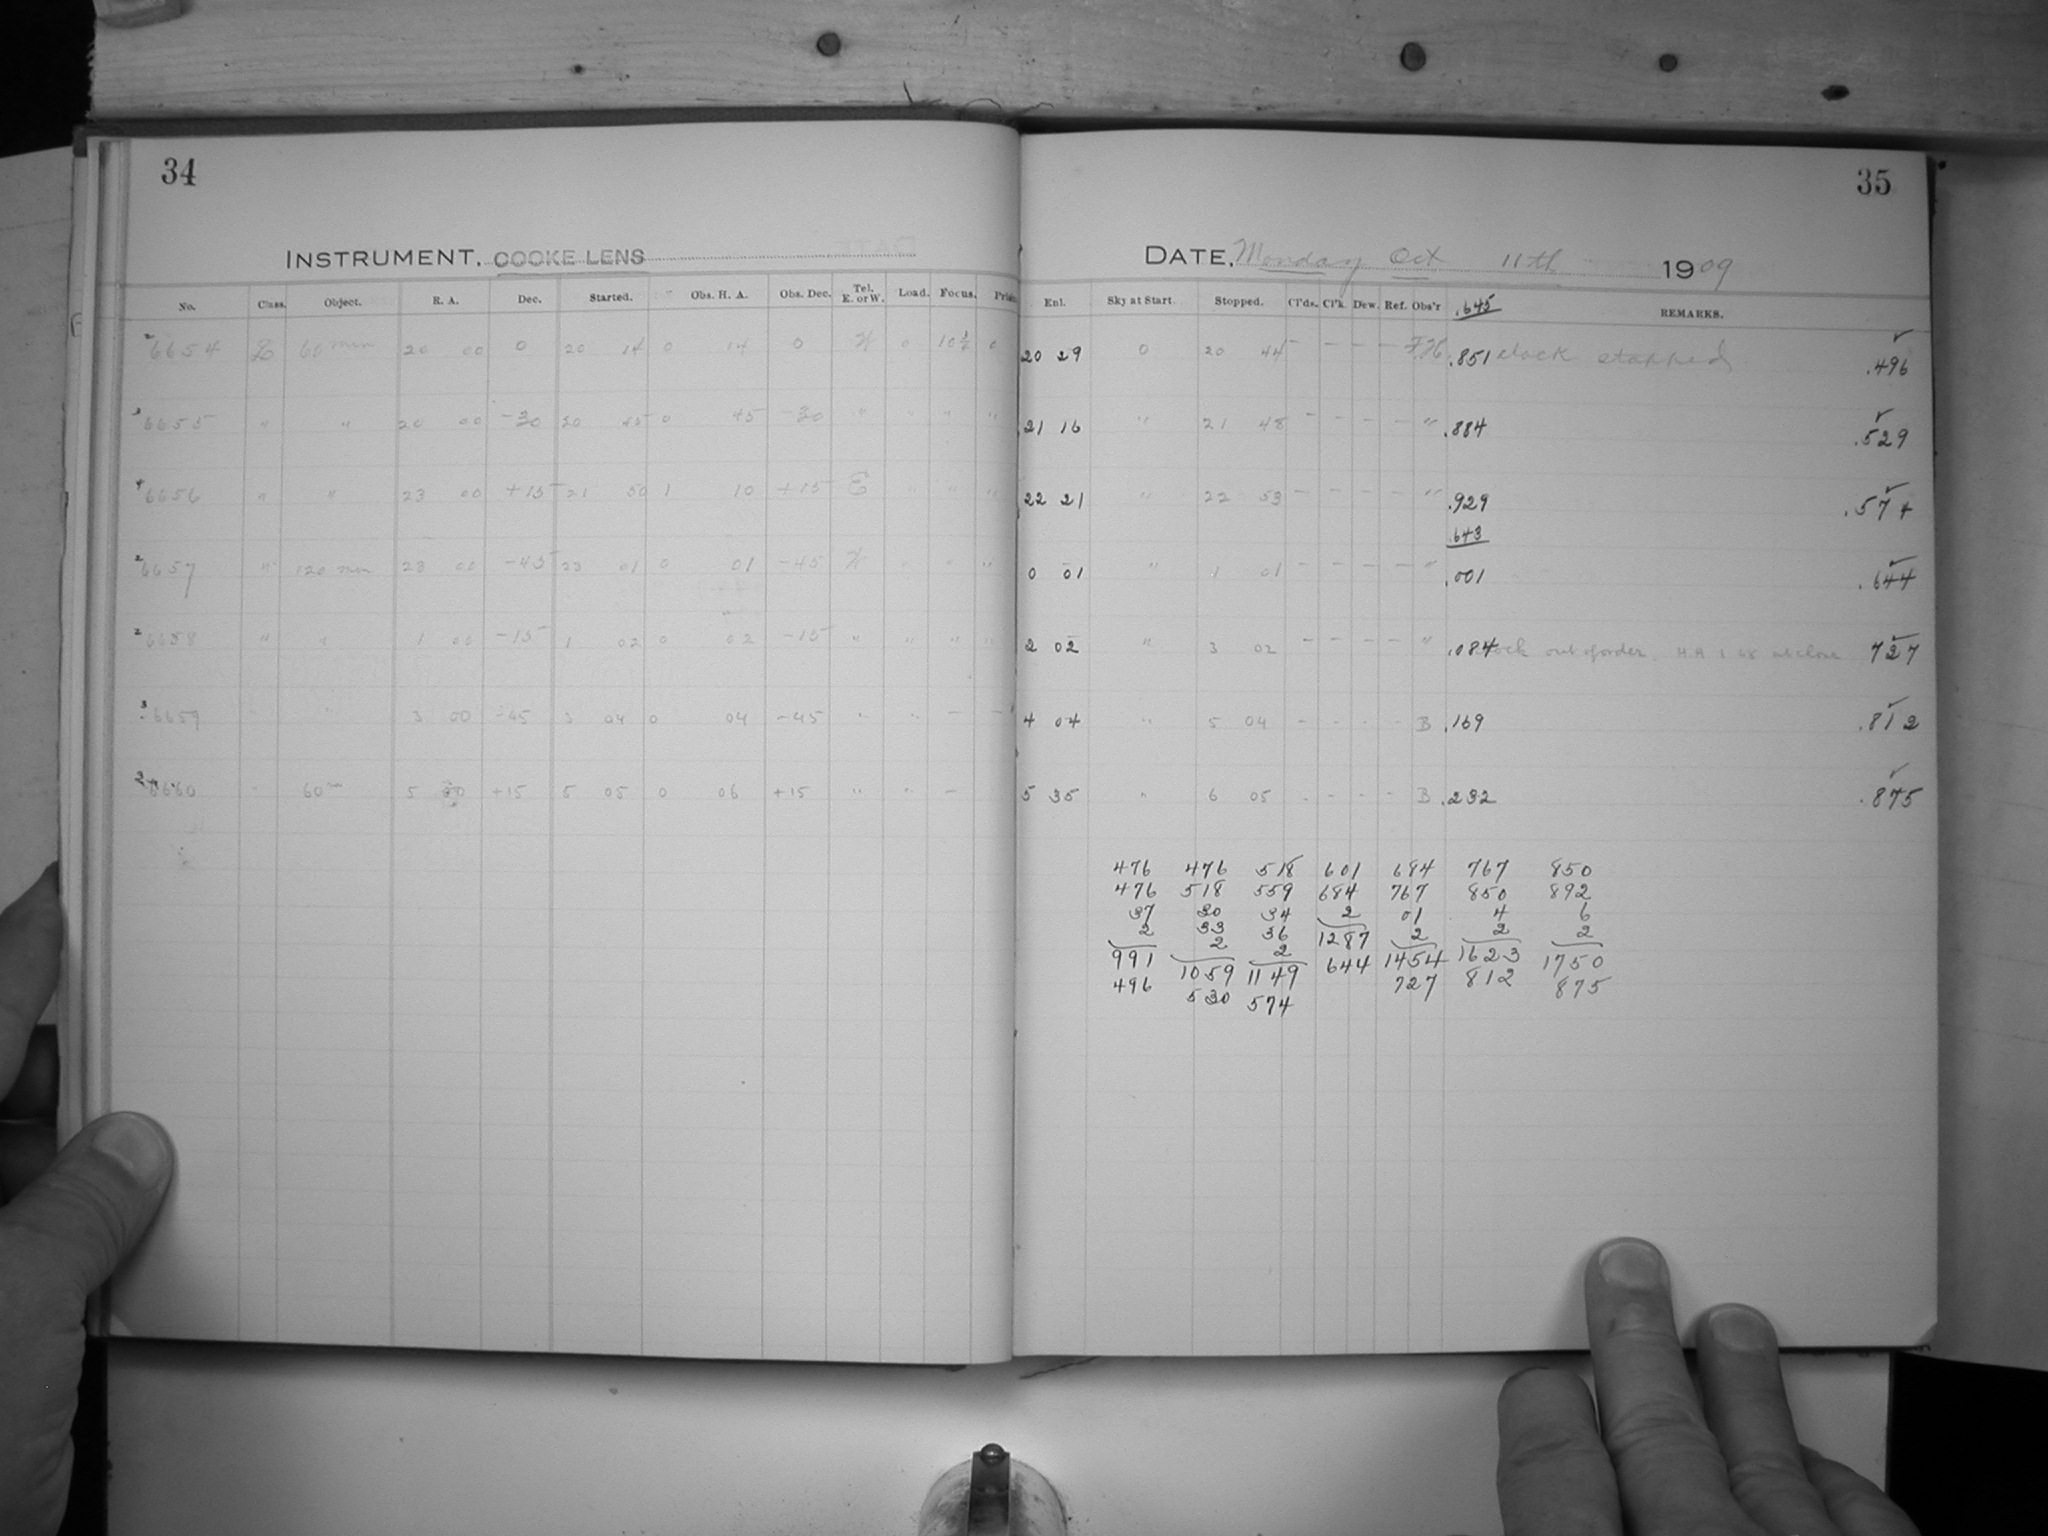 34
INSTRUMENT. COOKE LENS
No. Class. Object. R. A. Dec. Started. Obs. H. A. Obs. Dec. Tel. E. or W. Load. Focus.
6654 60 min 20 00 0 20 14 0 14 0 W 0 0
6655 " " 20 00 -30 20 45 0 45 -30 " " " "
6656 " " 23 00 +15 21 50 1 10 +15 E " " "
6657 " 120 min 23 00 -45 23 01 0 01 -45 W " " "
6658 " " 1 00 -15 1 02 0 02 -15 " " " "
6659 " " 3 00 -45 3 04 0 04 -45 " "
6660 " 60 m 5 00 +15 5 05 0 06 +15 " "
35
DATE. Monday Oct 11th 1909
Enl. Sky at Start. Stopped. Cl'ds. Cl'k. Dew. Ref. Obs'r .645 REMARKS.
20 29 0 20 44 - - - - .851 clock stopped .496
21 16 " 21 48 - - - - " .884 .529
22 21 " 22 53 - - - - " .929 .574
.643
0 01 " 1 01 - - - - " .001 .644
2 02 " 3 02 - - - - " .084 out of order H.A 1 48 at close 727
4 04 " 5 04 - - - - B .169 .812
5 35 " 6 05 - - - - B .232 .875
476 476 518 601 684 767 850
476 518 559 684 767 850 892
37 30 34 2 01 4 6
2 33 36 1287 2 2 2
991 2 2 644 1454 1623 1750
496 1059 1149 727 812 875
530 574